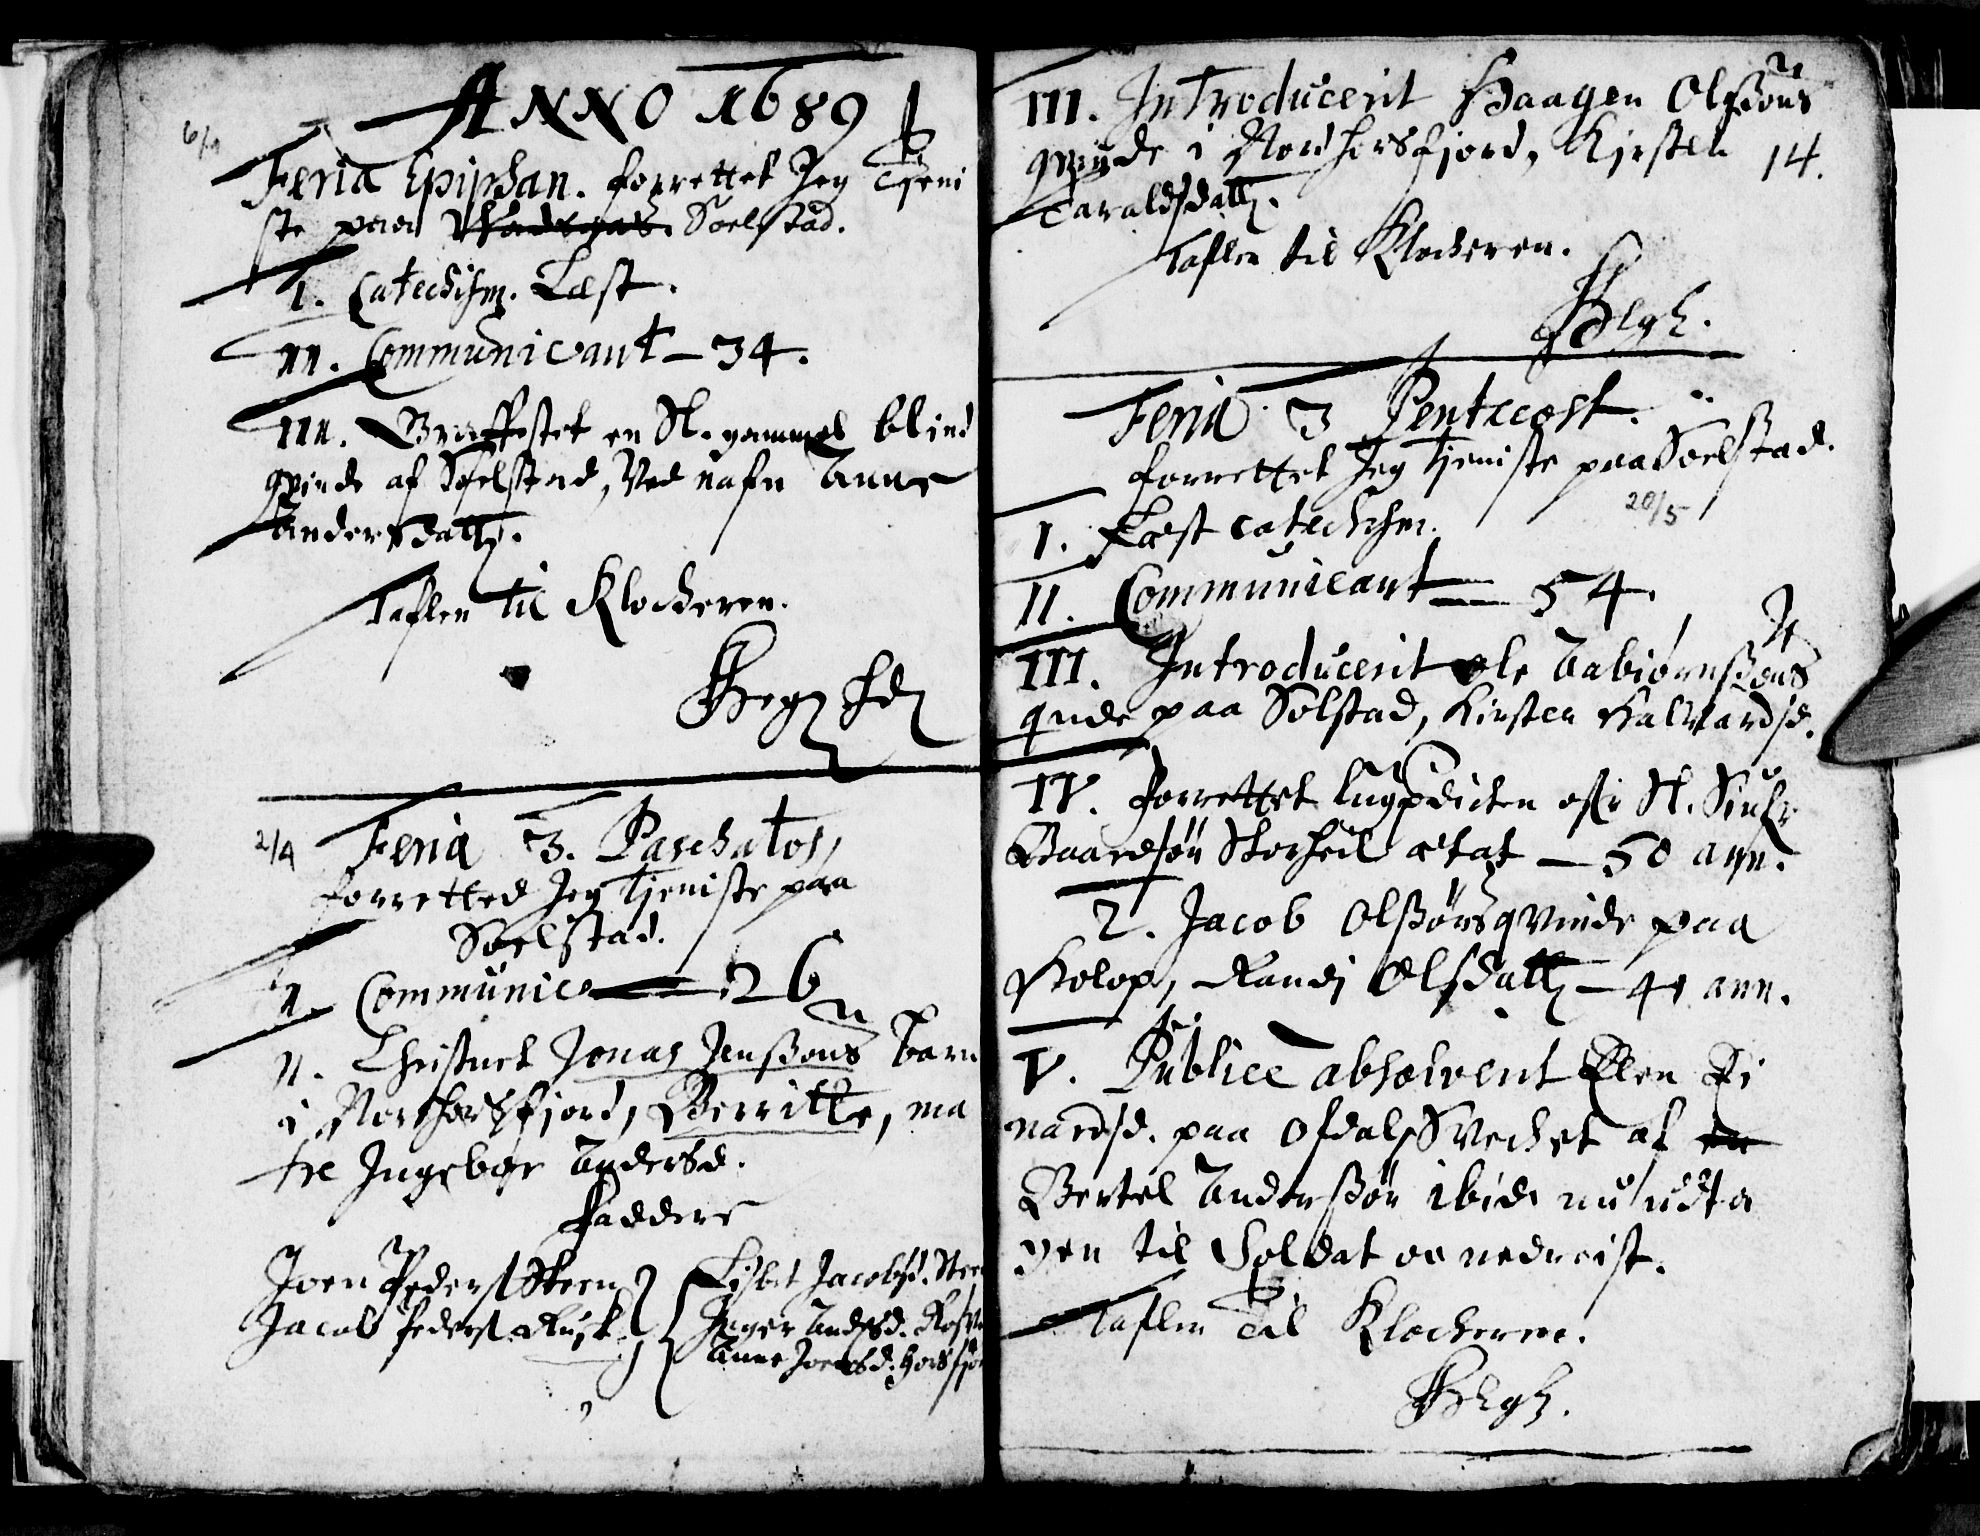 ANNO 1689
6/1
Feria Epiphan. forrettet Jeg Tjeni
ste paa Soelstad.
I. Catechism. Læst.
II. Communicant – 34.
III. Graffestet en St. gammel blind
qvinde af Soelstad, Ved nafn Anne
Andersdatt.
Taflen til Klockeren.
2/4
Feria 3. Paschatos,
forretted Jeg Tjeniste paa
Soelstad.
I. Communic – 26
II. Christnet Jonas Jenssøns barn
i Nordhorsfjord, Berritte, ma
tre Ingebor Andersd.
Faddere
Joen Peders. Steen
Jacob Peders.
Lisbet Jacobsd. Stee
Inger Andersd.
Anne Joensd. Horsfjor
III. Introducerit Haagen Olssøns
qvinde i Nordhorsfjord, Kirsten
Taraldsdatt.
14.
Taflen til Klockeren.
Feria 3 Pentecost.
forrettet Jeg Tjeniste paa Soelstad.
20/5
I. Læst Catechism.
II. Communicant – 54.
III. Introducerit Ole Aabiørnssøns
qinde paa Solstad, Kirsten Halvardsd.
IV. Forrettet Liigprædicken ofr St. Siufr
Baardsøn Storheil ætat – 50 ann.
2. Jacob Olssøns qvinde paa
Kolop, Randi Olsdatt – 41 ann.
V. Publice absolverit Elen Ei
nardsd. paa Ofdal, Svecket af en
Bertel Anderssøn ibid. nu udta
gen til Soldat oc nedreist.
Taflen Til Klockeren.